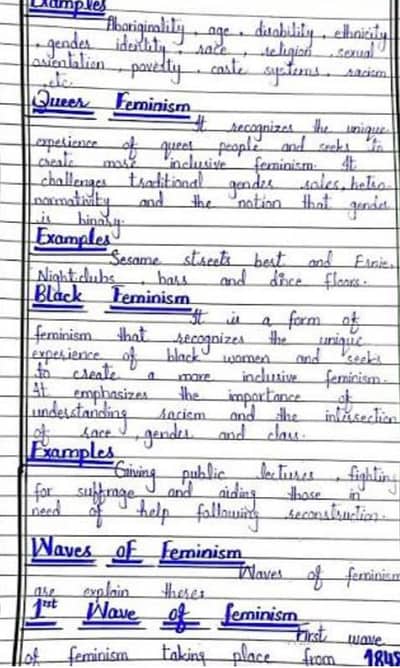 Examples
Aboriginality, age, disability, ethnicity
, gender identity, race, religion, sexual
orientation, poverty, caste systems, racism
, etc.
Queer Feminism
It recognizes the unique
experience of queer people and seeks to
create more inclusive feminism. It
challenges traditional gender roles, hetro-
normativity and the notion that gender
is binary.
Examples
Sesame streets best and Ernie,
Nightclubs, bars and dnce floors.
Black Feminism
It is a form of
feminism that recognizes the unique
experience of black women and seeks
to create a more inclusive feminism.
It emphasizes the importance of
understanding racism and the intersection
of race, gender and class.
Examples
Giving public lectures, fighting
for suffrage and aiding those in
need of help following reconstruction.
Waves of Feminism
Waves of feminism
are explain theses
1rst Wave of feminism
First wave
of feminism taking place from 1848